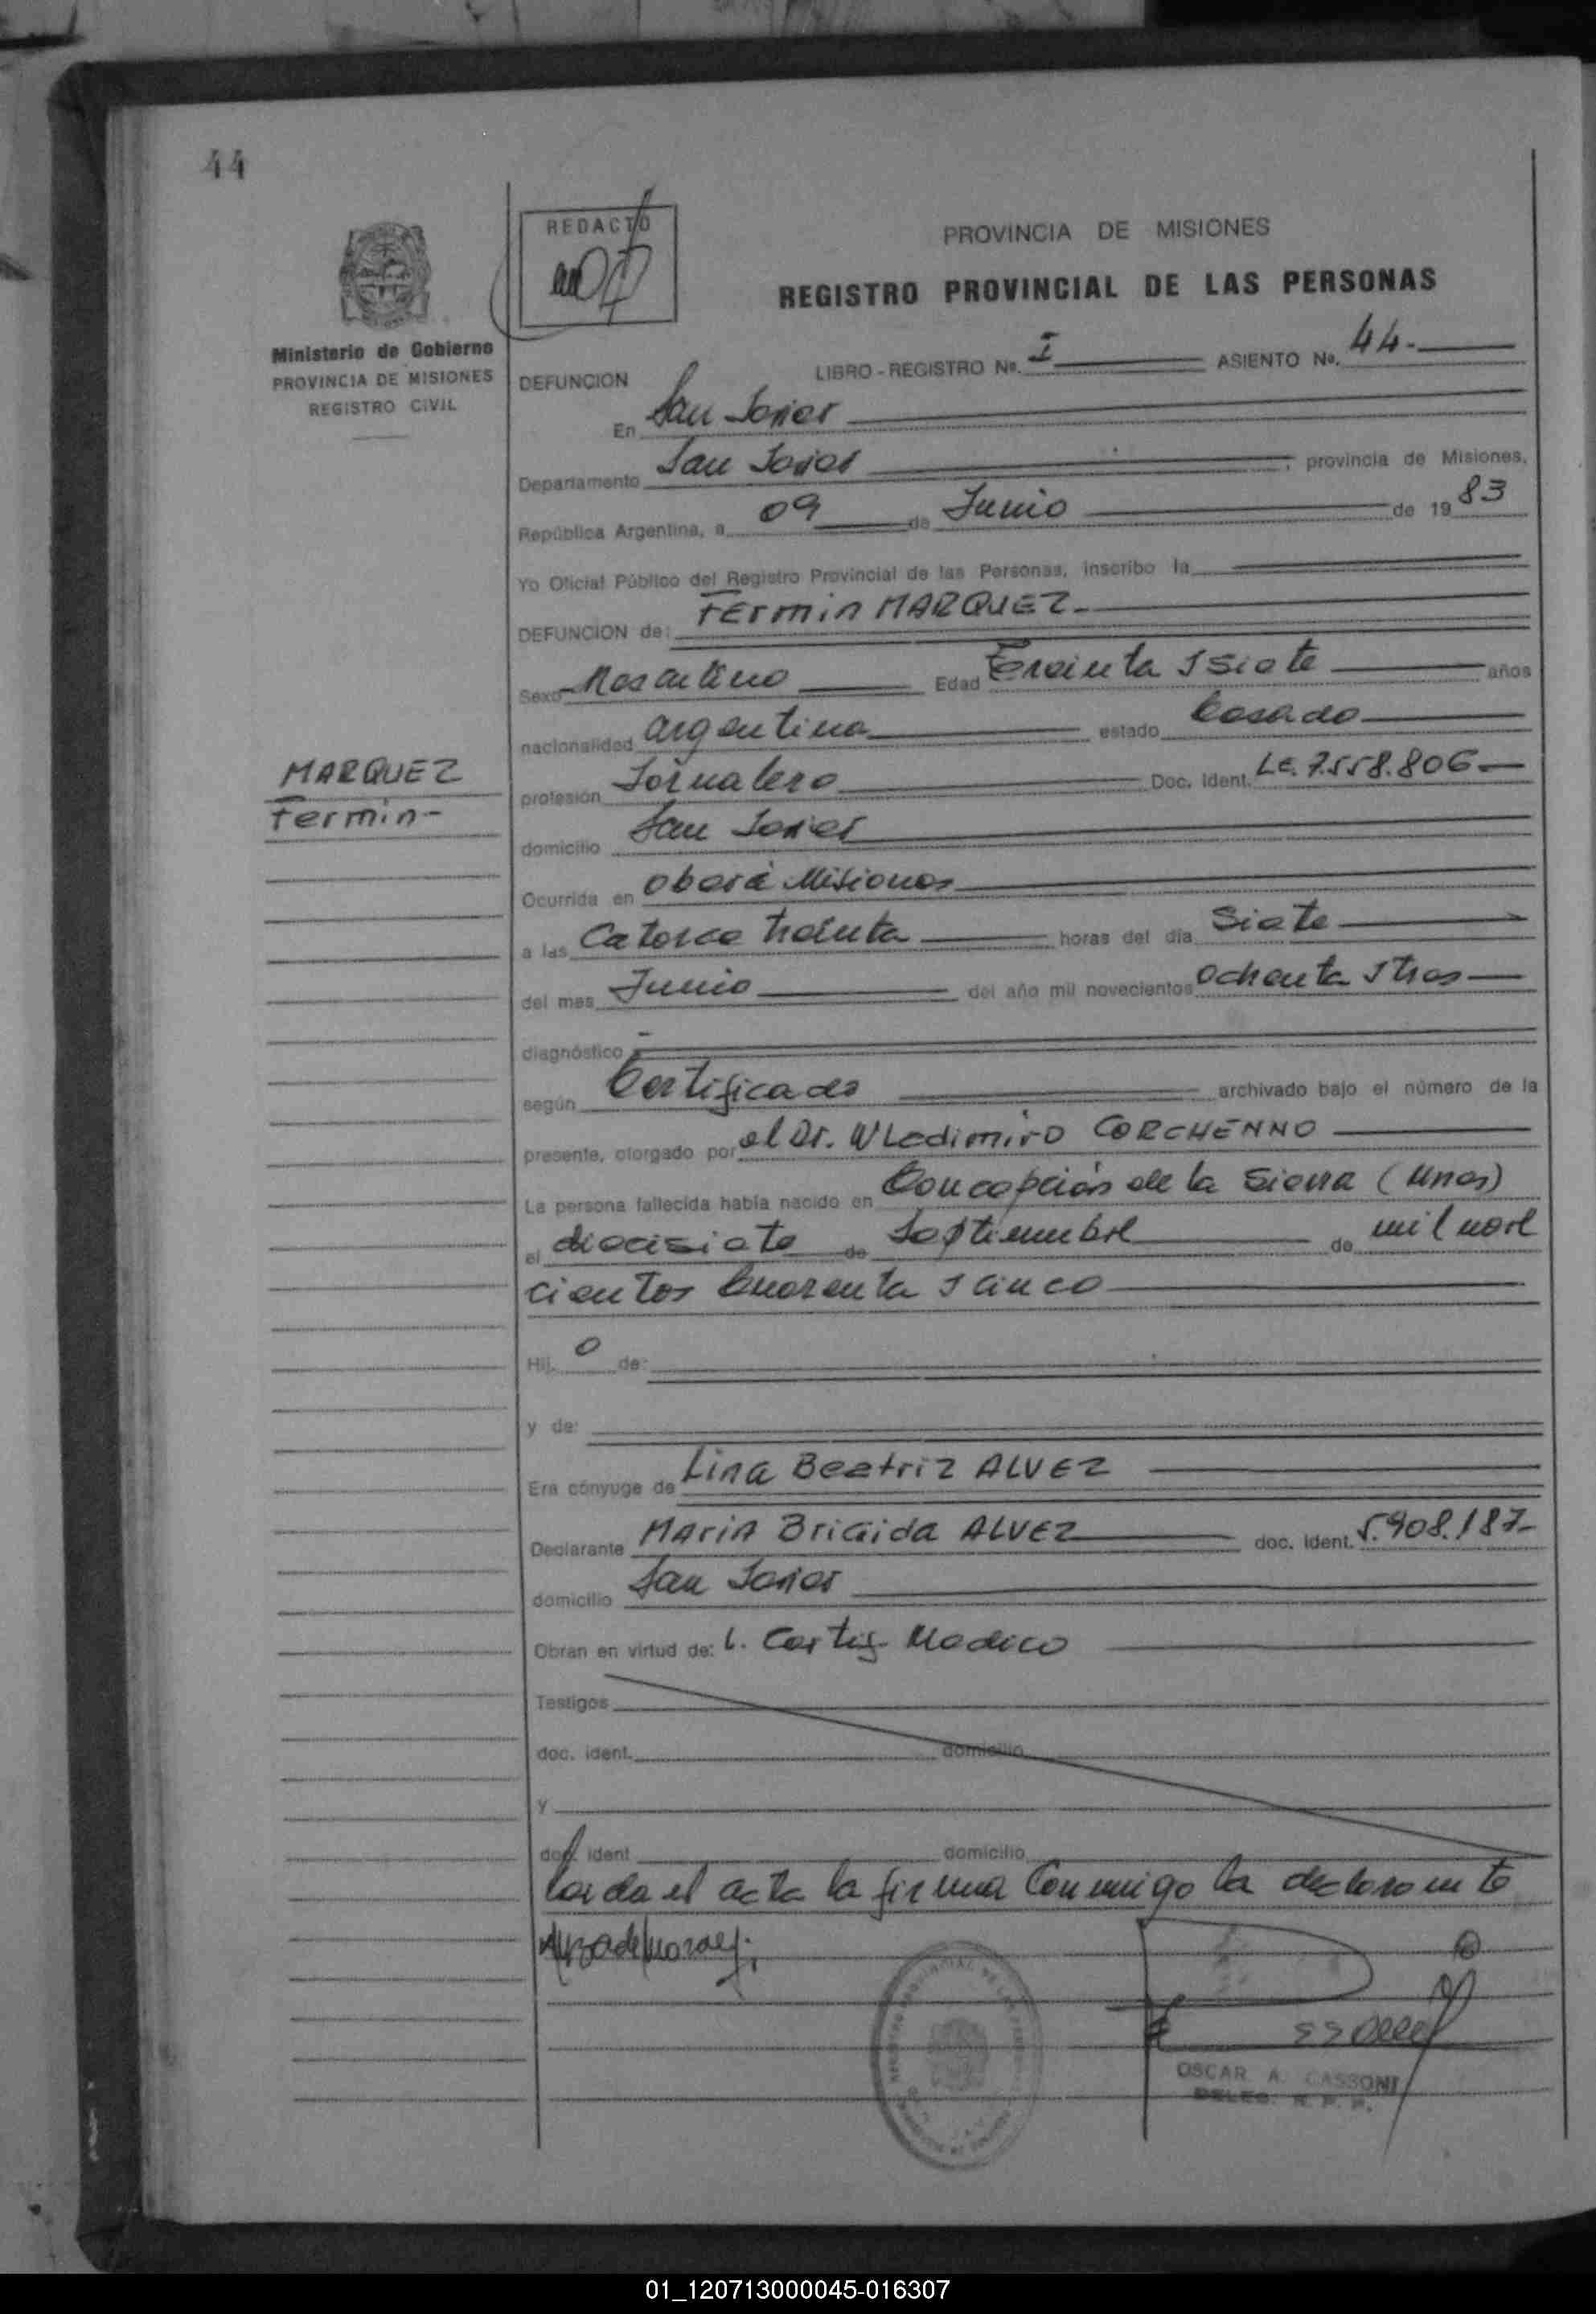 44
REDACTO
PROVINCIA DE MISIONES
REGISTRO PROVINCIAL DE LAS PERSONAS
Ministerio de Gobierno
PROVINCIA DE MISIONES
REGISTRO CIVIL
LIBRO - REGISTRO Nº. I ASIENTO Nº. 44.
DEFUNCION
En San Javier
Departamento San Javier ; provincia de Misiones,
República Argentina, a 09 de Junio de 1983
Yo Oficial Público del Registro Provincial de las Personas, inscribo la
DEFUNCION de: Fermin MARQUEZ.
Sexo Masculino Edad Treinta y Siete años
nacionalidad argentina estado Casado
MARQUEZ
Fermin-
profesión Jornalero Doc. Ident. L.E. 7.558.806
domicilio San Javier
Ocurrida en Oberá Misiones
a las Catorce treinta horas del día Siete
del mes Junio del año mil novecientos Ochenta y tres
diagnóstico
según Certificado archivado bajo el número de la
presente, otorgado por el Dr. WLadimiro CORCHENNO
La persona fallecida había nacido en Concepción de la Sierra (Mnes)
el diecisiete de Septiembre de mil nove
cientos Cuarenta y cinco
Hij o de:
y de:
Era cónyuge de Lina Beatriz ALVEZ
Declarante MARIA BriGida ALVEZ doc. Ident. 5.908.187-
domicilio San Javier
Obran en virtud de: 1. Certif. Medico
Testigos
doc. ident. domicilio
y
doc. ident domicilio
Leida el acta la firma Conmigo la declarante
OSCAR A. CASSONI
DELEG. R. P. P.
01_120713000045-016307